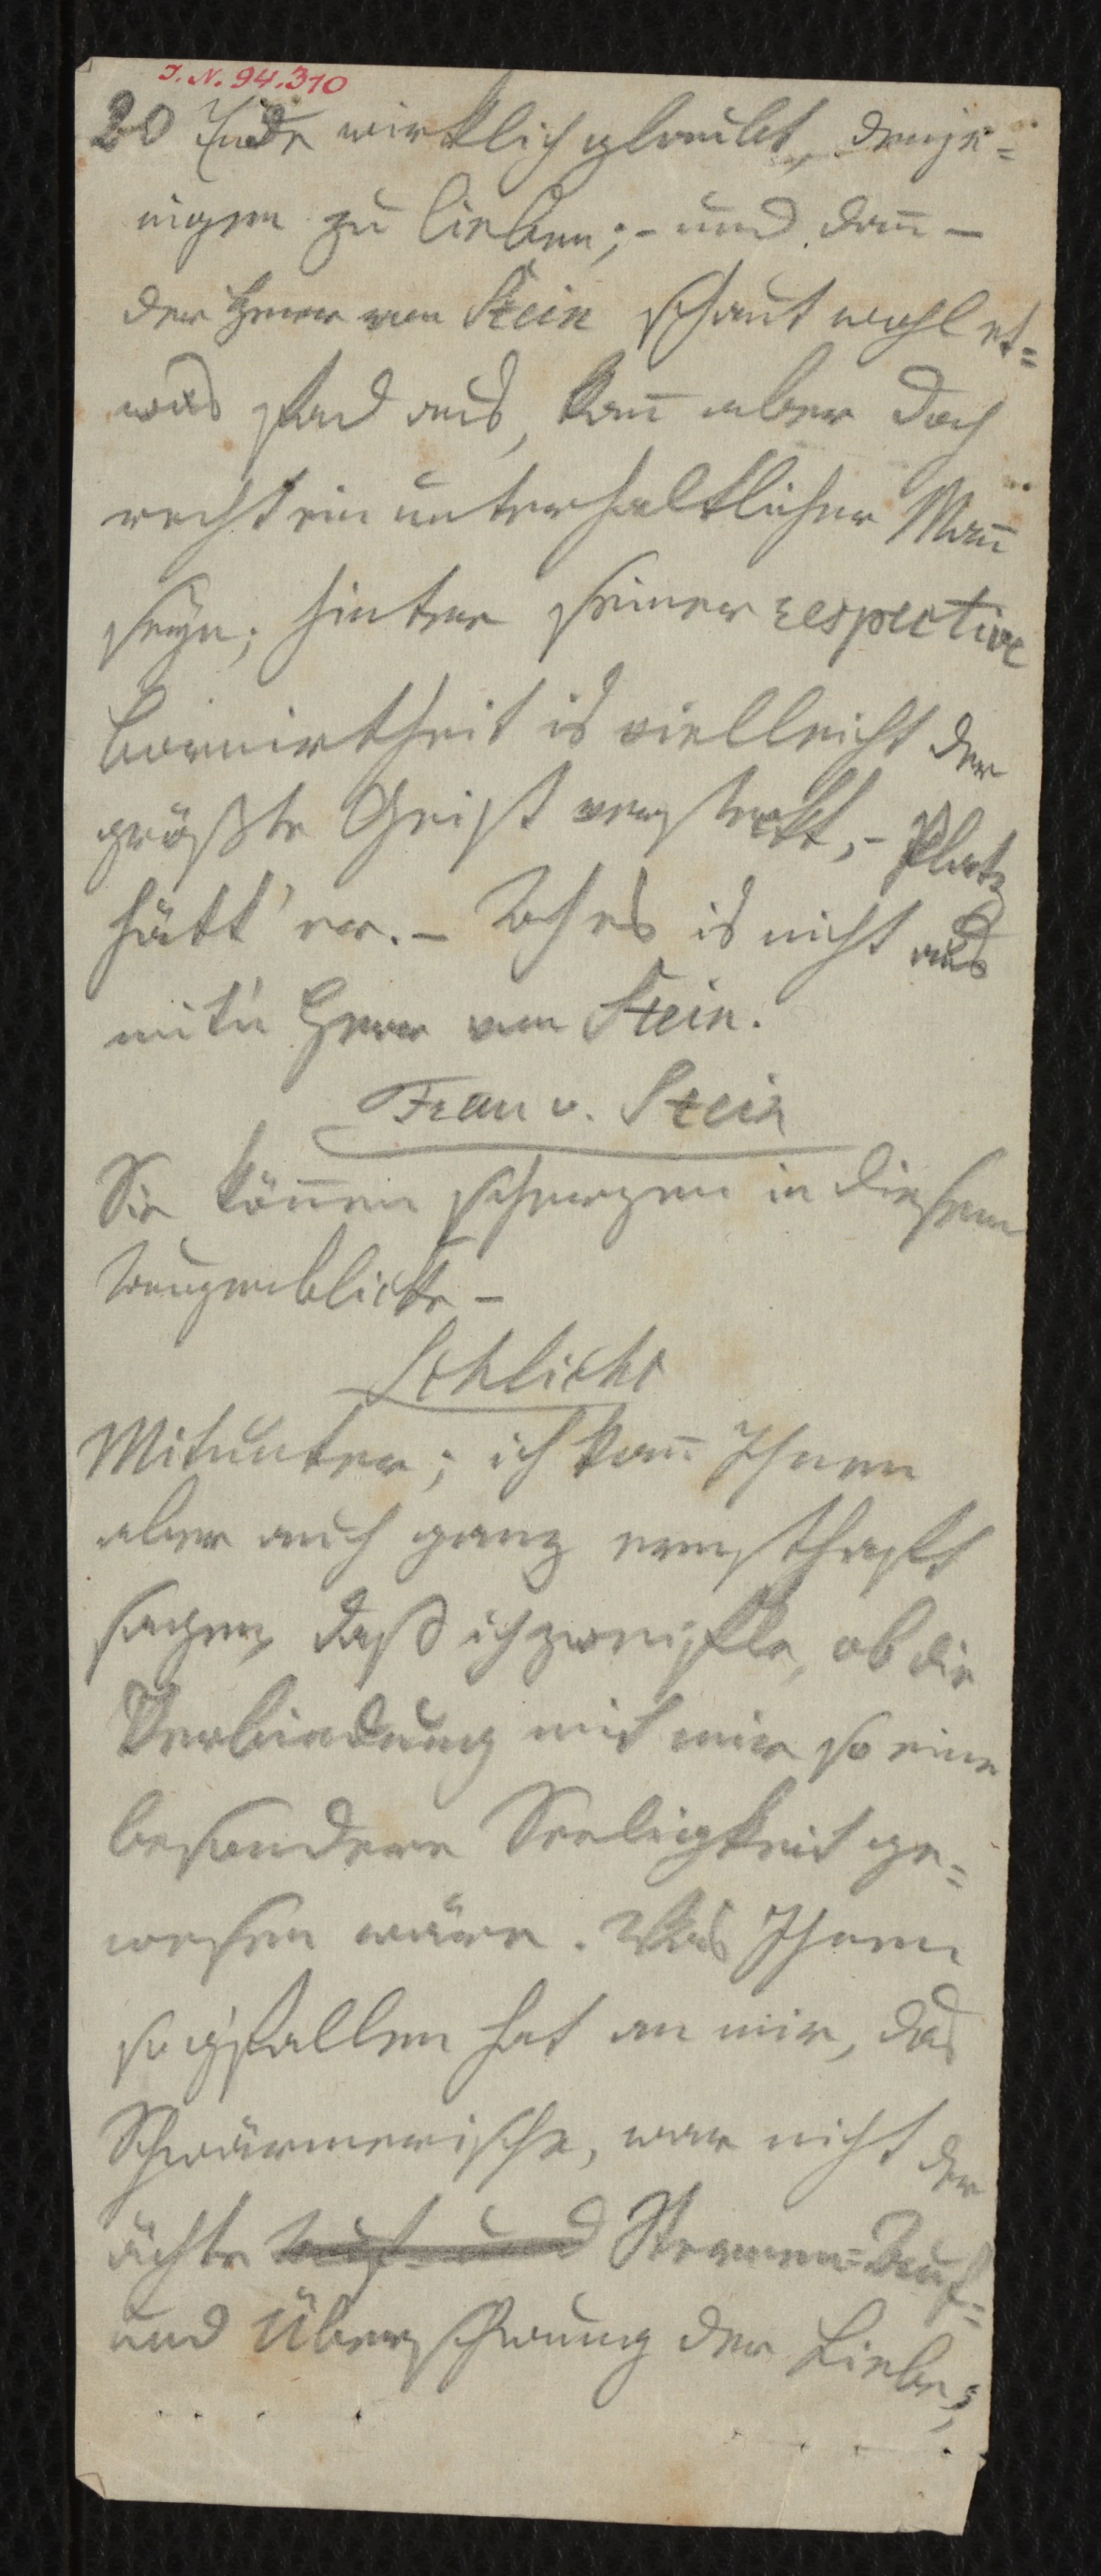 J. N. 94.310
20 Ende wirklich glaubt, denje=
nigen zu lieben; – und dañ –
der Herr von Stein schaut wohl et=
was fad aus, kañ aber doch
recht ein unterhaltlicher Mañ
seyn; hinter seiner respective
Bornirtheit is vielleicht der
größte Geist versteckt, – Platz
hätt' er. – Es is nicht aus
mit'n Herrn von Stein.
Frau v. Stein
Sie köñen scherzen in diesem
Augenblicke –
Schlicht
Mitunter; ich kañ Ihnen
aber auch ganz ernsthaft
sagen, daß ich zweifle, ob die
Verbindung mit mir so eine
besondere Seeligkeit ge=
wesen wäre. Was Ihnen
so g'fallen hat an mir, das
Schwärmerische, war nicht der
ächte Auf- und Sternen=Auf=
und Überschwung der Liebe;